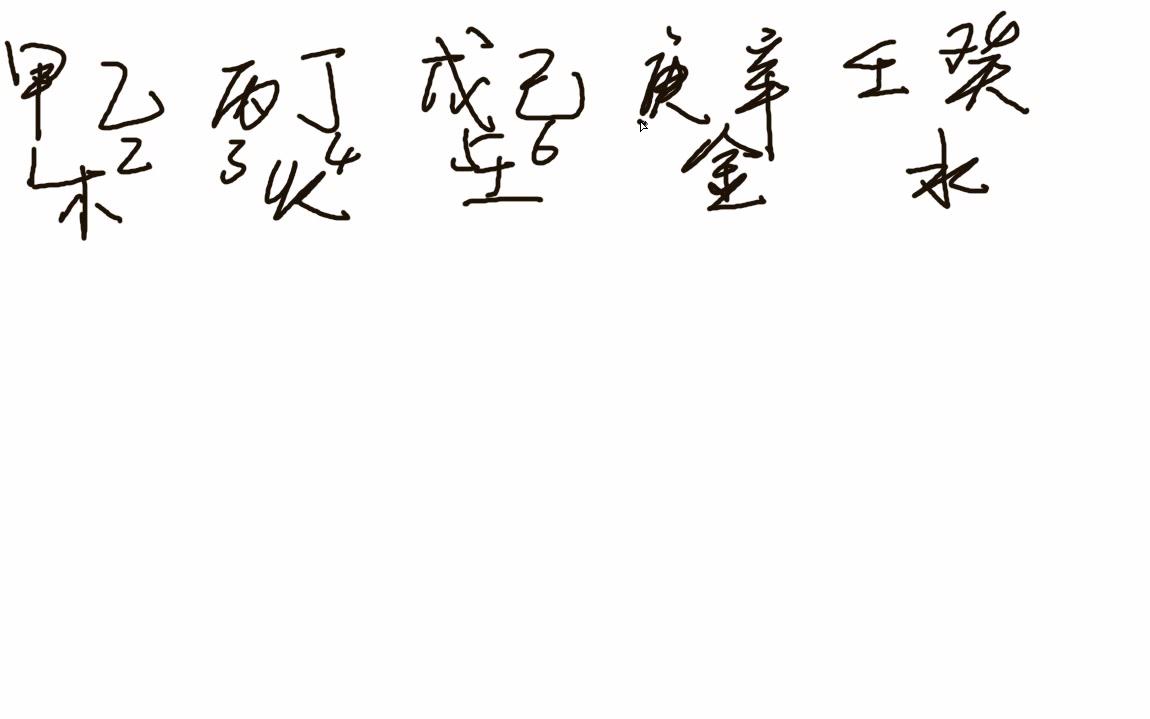 甲乙 丙丁 戊己 庚辛 壬癸
1 2 3 4 5 6
木 火 土 金 水